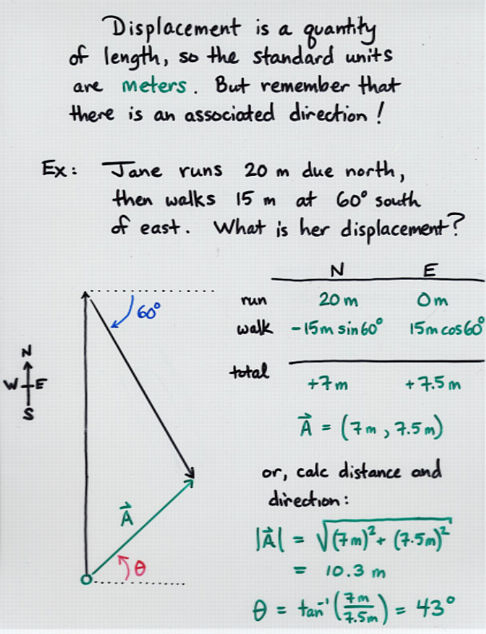 Displacement is a quantity
of length, so the standard units
are meters. But remember that
there is an associated direction!
Ex: Jane runs 20 m due north,
then walks 15 m at 60° south
of east. What is her displacement?
N E
run 20m 0m
walk -15m sin60° 15m cos60°
total +7m +7.5m
A⃗ = (7m, 7.5m)
or, calc distance and
direction:
|A⃗| = √(7m)² + (7.5m)²
= 10.3 m
θ = tan⁻¹(7m/7.5m) = 43°
60°
N
W E
S
A⃗
θ